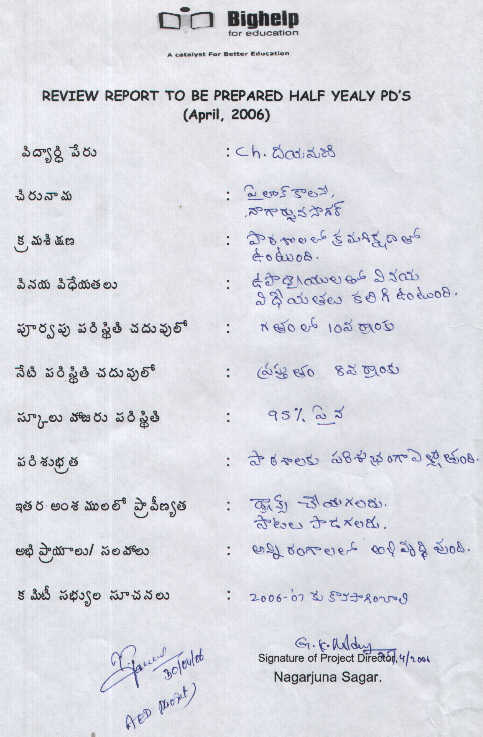 Bighelp
for education
A catalyst For Better Education
REVIEW REPORT TO BE PREPARED HALF YEALY PD'S
(April, 2006)
విద్యార్థి పేరు : Ch. దయామణి
చిరునామ : పైలాన్ కాలని,
నాగార్జున సాగర్
క్రమశిక్షణ : పాఠశాలలో క్రమశిక్షణతో
ఉంటుంది.
వినయ విధేయతలు : ఉపాధ్యాయులతో వినయ
విధేయతలు కలిగి ఉంటుంది.
పూర్వపు పరిస్థితి చదువులో : గతంలో 10వ ర్యాంకు
నేటి పరిస్థితి చదువులో : ప్రస్తుతం 8వ ర్యాంకు
స్కూలు హాజరు పరిస్థితి : 95% పైన
పరిశుభ్రత : పాఠశాలకు పరిశుభ్రంగా వెళ్తుంది.
ఇతర అంశములలో ప్రావీణ్యత : డ్యాన్స్ చేయగలదు.
పాటలు పాడగలదు.
అభిప్రాయాలు/ సలహాలు : అన్ని రంగాలలో అభివృద్ధి చెంది.
కమిటీ సభ్యుల సూచనలు : 2006-07 కు కొనసాగించాలి
30/04/06
AED (Project)
G.K. Reddy
Signature of Project Director, 4/2006
Nagarjuna Sagar.